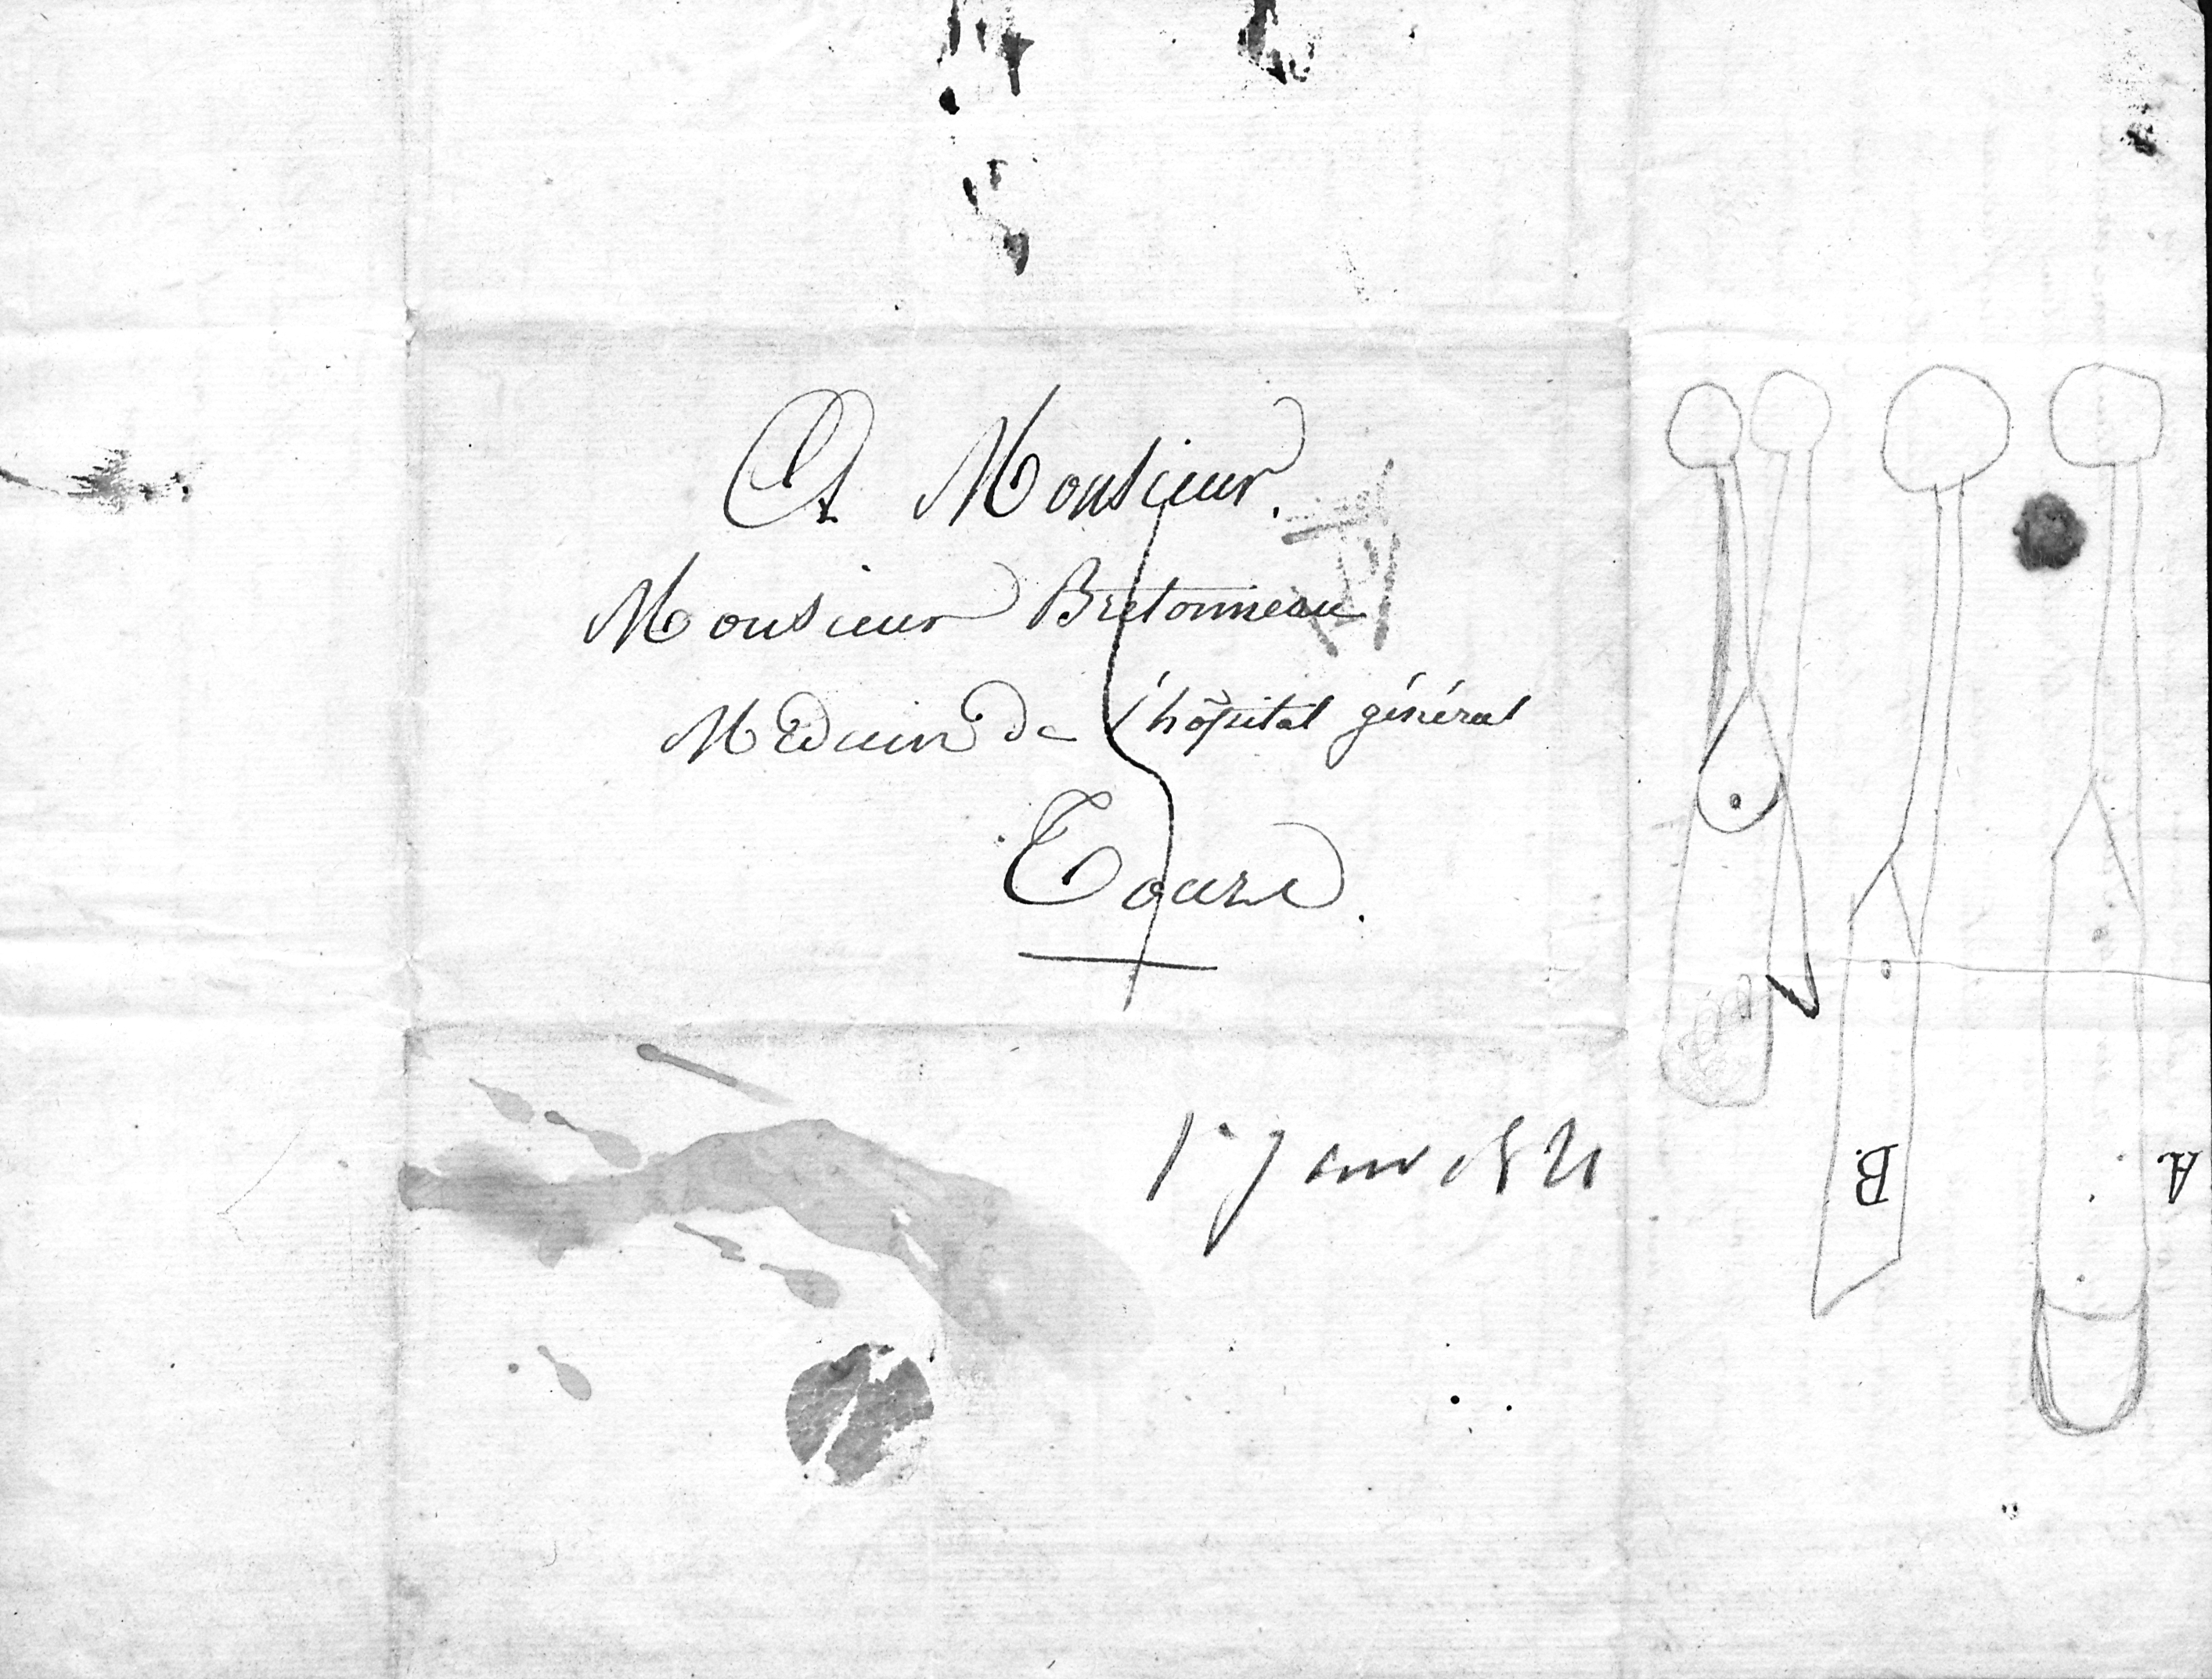 A Monsieur.
Monsieur Bretonneau
Médecin de l'hôpital général
Tours.
1er janv 1821
B.
A.